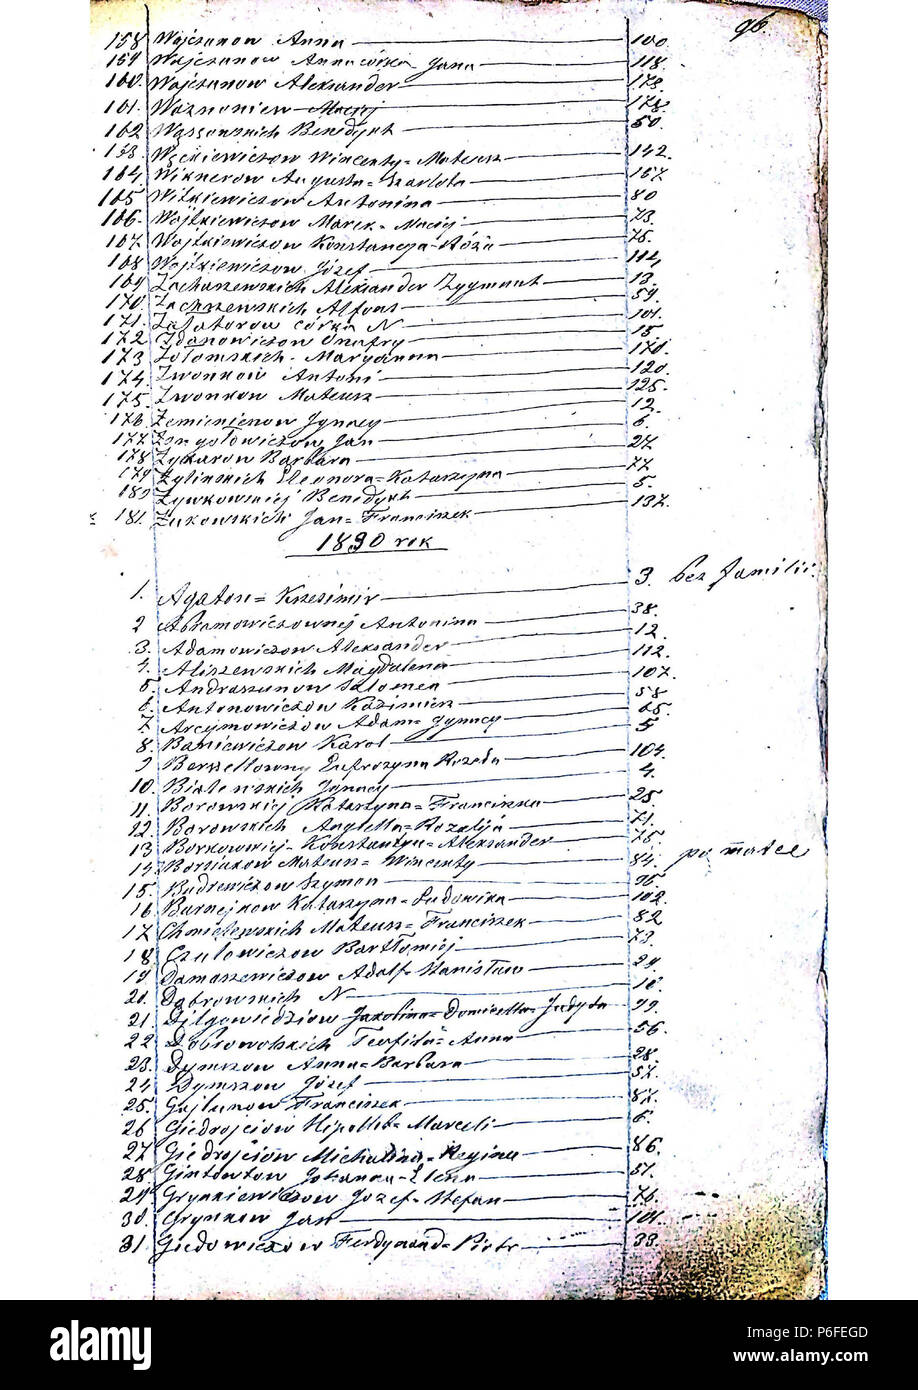 96.
158 Wojczanow Anna 100
159 Wojczanow Anna córka Jana 118.
160. Wojczanow Aleksander 178.
161. Woźnoniew Maciej 178.
162 Wąssowskich Benedykt 50.
163. Węckiewiczow Wincenty=Mateusz 142.
164. Wiknerow Augusta=Szarlota 167
165 Witkiewiczow Antonina 80
166. Wojtkiewiczow Marek=Maciej 73.
167. Wojtkiewiczow Konstancja-Róża 75.
168 Wojtkiewiczow Józef 114
169 Zachaszewskich Aleksander Zygmunt 13.
170. Zachszewskich Alfons 59.
171. Zalatorow córka N 101.
172 Zdanowiczow Onufry 15
173 Zołomskich-Maryanna 170.
174. Zwonkow Antoni 120.
175. Zwonkow Mateusz 125.
176 Żemienienow Jgnacy 12.
177. Żongołowiczow Jan 6.
178 Żykarow Barbara 27
179 Żylinskich Eleonora=Katarzyna 77
180 Żywkowskiej Benedykt 5.
181. Żukowskich Jan=Franciszek 137.
1830 rok
1. Agaton=Krzesimir 3. bez familii.
2 Abramowiczownej Antonina 38.
3. Adamowiczow Aleksander 12.
4. Aliszewskich Magdalena 112.
5. Andraszunow Salomea 107.
6. Antonowiczow Kazimierz 58
7. Arcymowiczow Adam=Jgnacy 65.
8. Baniewiczow Karol 5
9 Eufrozyna Rozalia 104.
10. Białewskich Jgnacy 4.
11. Borowskiej Katarzyna=Franciszka 25.
12. Borowskich Angella=Rozalija 71.
13 Borkowiej-Konstantyn=Aleksander 75.
14 Borsiukow Mateusz=Wincenty 84. po matce
15. Budrewiczow Szymon 95.
16 Burnejkow Katarzyna=Ludowika 102.
17 Chmielewskich Mateusz=Franciszek 82
18 Czulowiczow Bartłomiej 73.
19 Damaszewiczow Adolf=Stanisław 29.
20. Dąbrowskich N 10.
21. Dilgowiedziow Karolina=Domicella=Judyta 99.
22 Dobrowolskich Teofila=Anna 56.
23. Dymszow Anna=Barbara 28.
24 Dymszow Józef 57.
25. Gajlunow Franciszek 87.
26 Giedrojciow Hipolit=Marceli 6.
27 Giedrojciow Michalina=Regina 86.
28. Gintowtow Johanna-Elena 51.
29 Grynkiewiczow Jozef=Stefan 76.
30. Grynkow Jan 101.
31 Giedowiczow Ferdynand=Piotr 33.
alamy
Image ID: P6FEGD
www.alamy.com